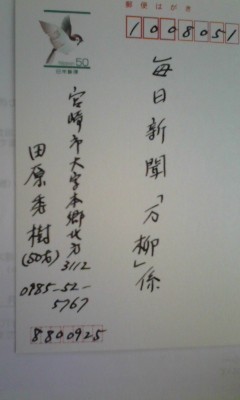 郵便はがき
50
日本郵便
1008051
毎日新聞「万柳」係
宮崎市大字本郷北方
3112
田原秀樹
(50才)
0985-52-
5767
8800925